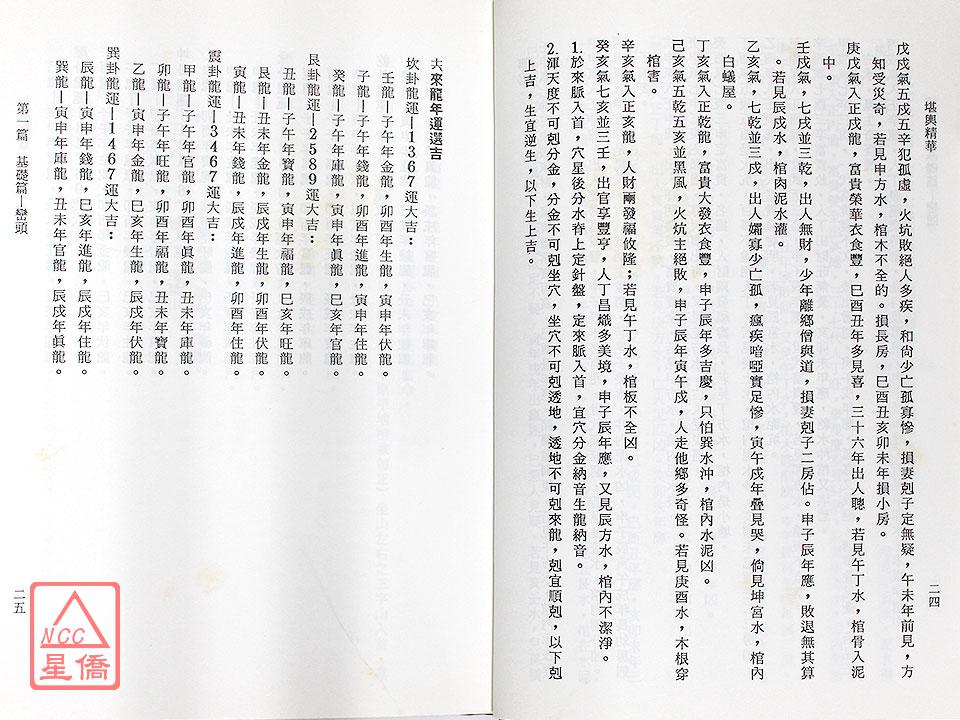 堪輿精華
二四
戊戌氣五戌五辛犯孤虛，火坑敗絕人多疾，和尚少亡孤寡慘，損妻剋子定無疑，午未年前見，方
知受災奇，若見申方水，棺木不全的。損長房，巳酉丑亥卯未年損小房。
庚戌氣入正戌龍，富貴榮華衣食豐，巳酉丑年多見喜，三十六年出人聰，若見午丁水，棺骨入泥
中。
壬戌氣，七戌並三乾，出人無財，少年離鄉僧與道，損妻剋子二房佔。申子辰年應，敗退無其算
。若見辰戌水，棺肉泥水灌。
乙亥氣，七乾並三戌，出人孀寡少亡孤，瘋疾喑啞實足慘，寅午戌年叠見哭，倘見坤宮水，棺內
白蟻屋。
丁亥氣入正乾龍，富貴大發衣食豐，申子辰年多吉慶，只怕巽水沖，棺內水泥凶。
己亥氣五乾五亥並黑風，火炕主絕敗，申子辰年寅午戌，人走他鄉多奇怪。若見庚酉水，木根穿
棺害。
辛亥氣入正亥龍，人財兩發福攸隆；若見午丁水，棺板不全凶。
癸亥氣七亥並三壬，出官享豐亨，人丁昌熾多美境，申子辰年應，又見辰方水，棺內不潔淨。
1.於來脈入首，穴星後分水脊上定針盤，定來脈入首，宜穴分金納音生龍納音。
2.渾天度不可剋分金，分金不可剋坐穴，坐穴不可剋透地，透地不可剋來龍，剋宜順剋，以下剋
上吉，生宜逆生，以下生上吉。
夫來龍年運選吉
坎卦龍運—1367運大吉：
壬龍—子午年金龍，卯酉年生龍，寅申年伏龍。
子龍—子午年錢龍，卯酉年進龍，寅申年住龍。
癸龍—子午年庫龍，寅申年眞龍，巳亥年官龍。
艮卦龍運—2589運大吉：
丑龍—子午年寶龍，寅申年福龍，巳亥年旺龍。
艮龍—丑未年金龍，辰戌年生龍，卯酉年伏龍。
寅龍—丑未年錢龍，辰戌年進龍，卯酉年住龍。
震卦龍運—3467運大吉：
甲龍—子午年官龍，卯酉年眞龍，丑未年庫龍。
卯龍—子午年旺龍，卯酉年福龍，丑未年寶龍。
乙龍—寅申年金龍，巳亥年生龍，辰戌年伏龍。
巽卦龍運—1467運大吉：
辰龍—寅申年錢龍，巳亥年進龍，辰戌年住龍。
巽龍—寅申年庫龍，丑未年官龍，辰戌年眞龍。
第一篇 基礎篇—巒頭
二五
NCC
星僑